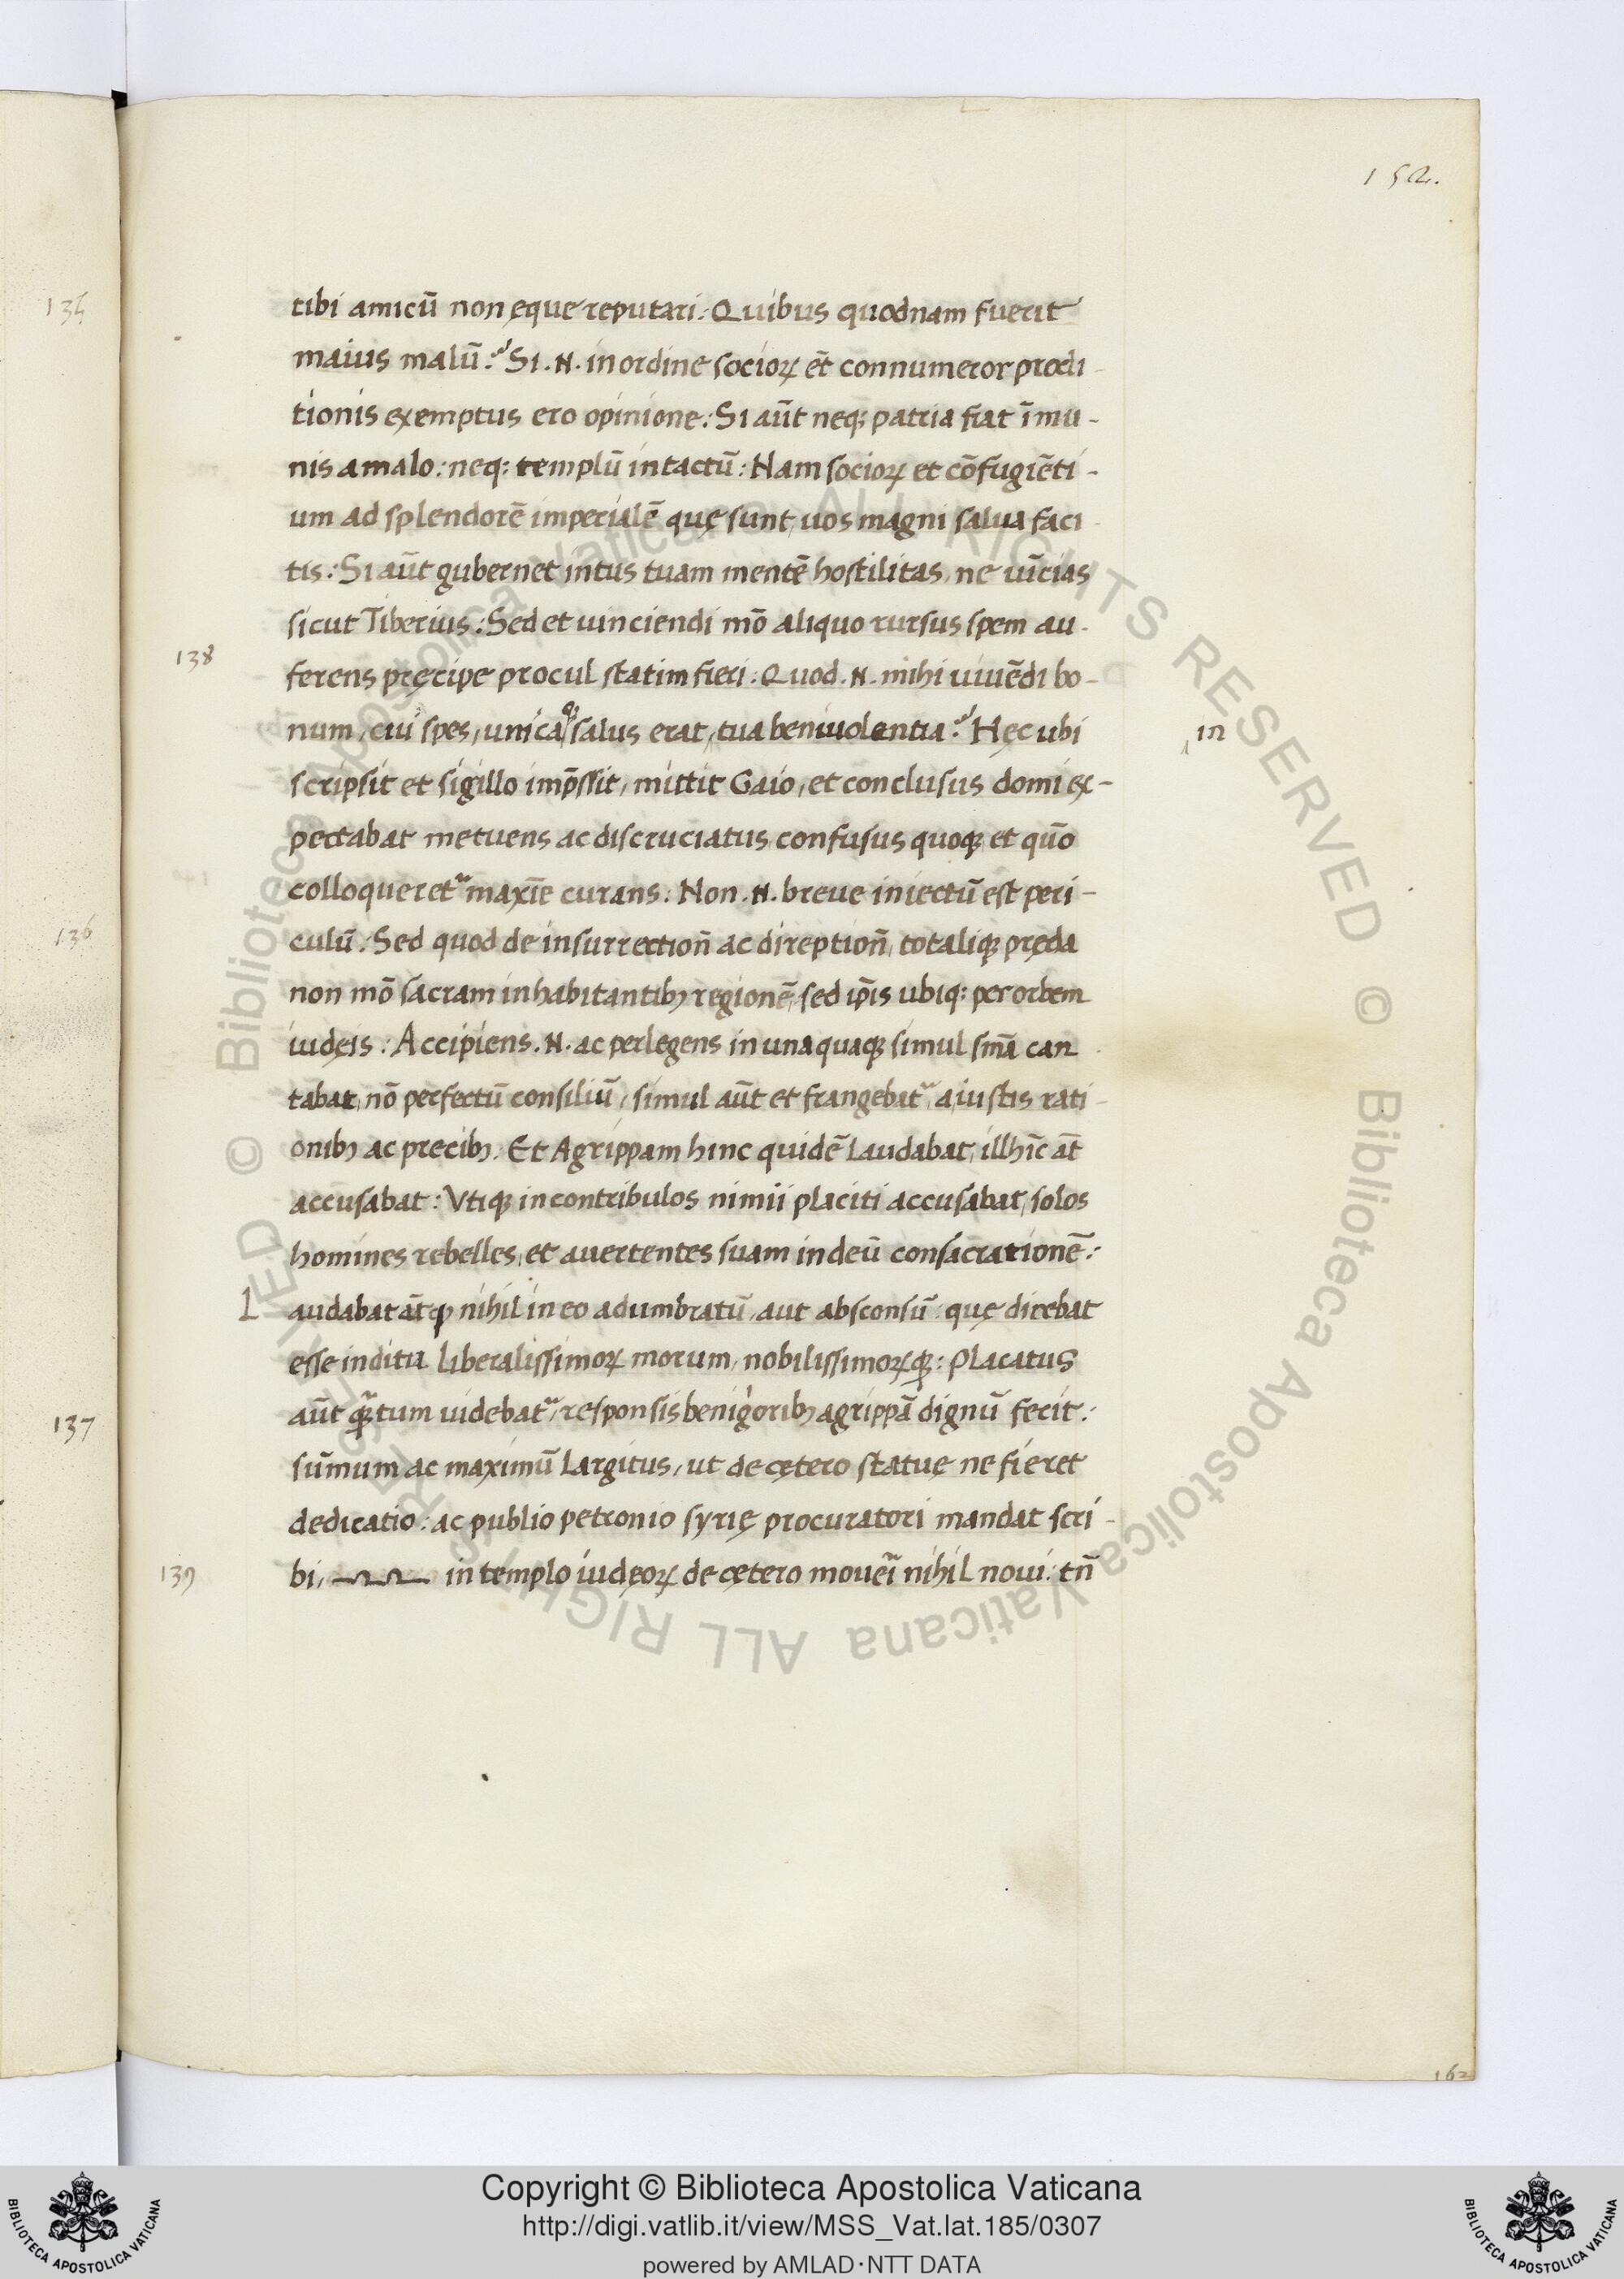 152.
tibi amicū non ęque reputari: Quibus quodnam fuerit
maius malū? Si .N. in ordine socioꝝ et̄ connumeror prodi-
tionis exemptus ero opinione: Si aūt neq; patria fiat īmu-
nis a malo: neq; templū intactū: Nam socioꝝ et cōfugiēti-
um ad splendorē imperialē quę sunt, uos magni salua faci-
tis: Si aūt gubernet intus tuam mentē hostilitas, ne uīcias
sicut Tiberius: Sed et uinciendi mō aliquo rursus spem au-
138
ferens pręcipe procul statim fieri: Quod .N. mihi uiuēdi bo-
num, cui spes, unicaq; salus erat, tua beniuolentia? Hęc ubi
in
scripsit et sigillo imp̄ssit, mittit Gaio, et conclusus domi ex-
pectabat metuens ac discruciatus, confusus quoqꝫ et quō
colloqueret᷑ maxīe curans: Non .N. breue iniectū est peri-
culū: Sed quod de insurrectioñ ac direptioñ, totaliqꝫ pręda
non mō sacram inhabitantibꝫ regionē, sed ip̄is ubiq; per orbem
iudęis: Accipiens .N. ac perlegens in una quaqꝫ simul sm̄a can
tabat, nō perfectū consiliū, simul aūt et frangebat᷑, a iustis rati-
onibꝫ ac precibꝫ. Et Agrippam hinc quidē Laudabat, illhīc at̄
accusabat: Vtiqꝫ in contribulos nimii placiti accusabat, solos
homines rebelles, et auertentes suam in deū consacrationē:
L audabat at̄ ꝙ nihil in eo adumbratū, aut absconsū: quę dicebat
esse inditia liberalissimoꝝ morum, nobilissimoꝝqꝫ: Placatus
aūt quātum uidebat᷑, responsis benigoribꝫ agrippā dignū fecit:
137
sūmum ac maximū Largitus, ut de cętero statuę ne fieret
dedicatio: ac publio petronio syrię procuratori mandat scri-
139
bi, in templo iudęoꝝ de cętero moueri nihil noui: tn̄
162
136
Copyright © Biblioteca Apostolica Vaticana
http://digi.vatlib.it/view/MSS_Vat.lat.185/0307
powered by AMLAD·NTT DATA
BIBLIOTECA APOSTOLICA VATICANA
BIBLIOTECA APOSTOLICA VATICANA
© Biblioteca Apostolica Vaticana ALL RIGHTS RESERVED © Biblioteca Apostolica Vaticana ALL RIGHTS RESERVED